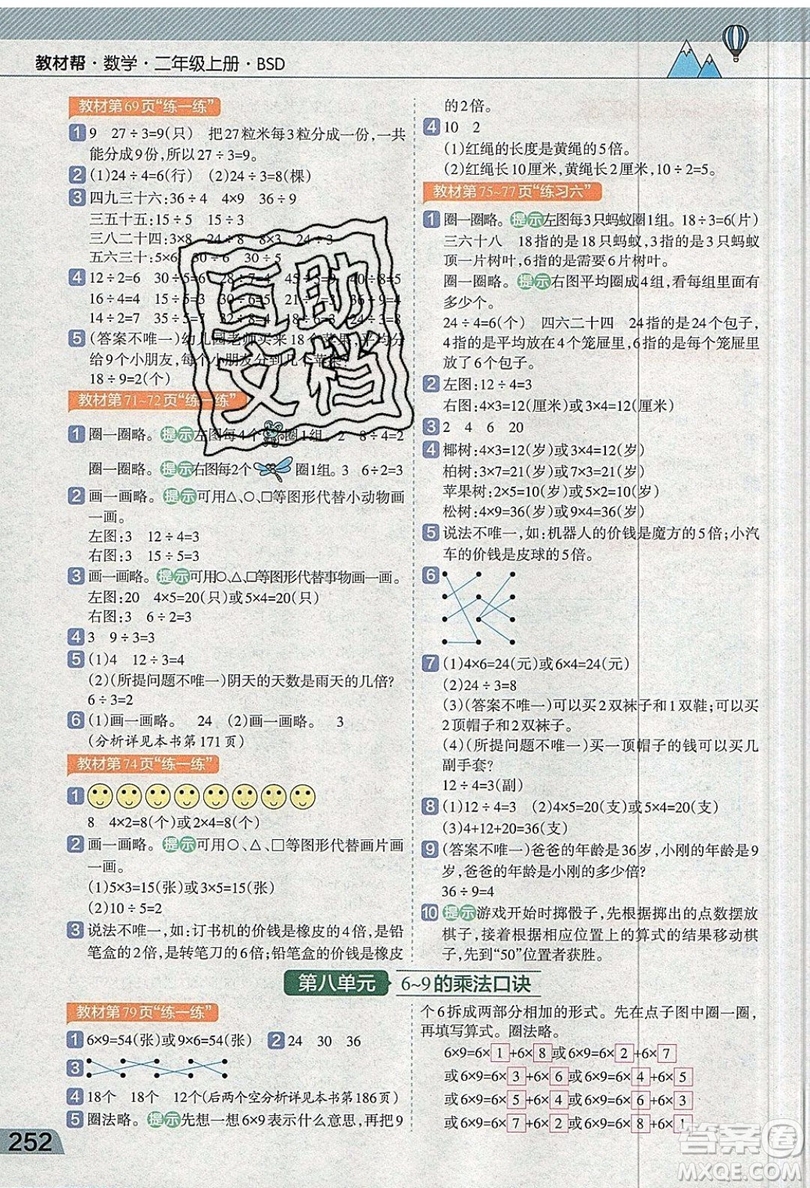 教材帮·数学·二年级上册·BSD
教材第69页“练一练”
1 9 27÷3=9(只) 把27粒米每3粒分成一份,一共
能分成9份,所以27÷3=9。
2 (1)24÷4=6(位) (2)24÷3=8(棵)
3 四九三十六:36÷4 4×9 36÷9
三五十五:15÷3
三八二十四:3×8 24÷8 8×3 24÷3
五六三十:5×6 30÷6 30÷5
4 12÷2=6 30÷5=6 40÷8=5
16÷4=4
18÷2=9 15÷3=5 35÷5=7
5 (答案不唯一)幼儿园老师买来18个苹果,平均分
给9个小朋友,每个小朋友分到几个苹果?
18÷9=2(个)
教材第71~72页“练一练”
1 圈一圈略。提示左图每4个圈1组。2 8÷4=2
圈一圈略。提示右图每2个圈1组。3 6÷2=3
2 画一画略。提示可用△、○、□等图形代替小动物画
一画。
左图:3 12÷4=3
右图:3 15÷5=3
3 画一画略。提示可用○、△、□等图形代替事物画一画。
左图:20 4×5=20(只)或5×4=20(只)
右图:3 6÷2=3
4 3 9÷3=3
5 (1)4 12÷3=4
(2)(所提问题不唯一)阴天的天数是雨天的几倍?
6÷3=2
6 (1)画一画略。 24 (2)画一画略。 3
(分析详见本书第171页)
教材第74页“练一练”
1
8 4×2=8(个)或2×4=8(个)
2 画一画略。提示可用△、○、□等图形代替画片画
一画。
(1)5×3=15(张)或3×5=15(张)
(2)10÷5=2
3 说法不唯一,如:订书机的价钱是橡皮的4倍,是铅
笔盒的2倍,是转笔刀的6倍;铅笔盒的价钱是橡皮
的2倍。
4 10 2
(1)红绳的长度是黄绳的5倍。
(2)红绳长10厘米,黄绳长2厘米,10÷2=5。
教材第75~77页“练习六”
1 圈一圈略。提示左图每3只蚂蚁圈1组。18÷3=6(片)
三六十八 18指的是18只蚂蚁,3指的是3只蚂蚁
抬一片树叶,6指的是6片树叶。
圈一圈略。提示右图平均圈成4组,看每组里面有
多少个。
24÷4=6(个) 四六二十四 24指的是24个包子,
4指的是平均放在4个笼屉里,6指的是每个笼屉里
放了6个包子。
2 左图:12÷4=3
右图:4×3=12(厘米)或3×4=12(厘米)
3 2 4 6 20
4 椰树:4×3=12(岁)或3×4=12(岁)
柏树:4×3=12(岁)或3×4=12(岁)
苹果树:2×5=10(岁)或5×2=10(岁)
松树:4×5=20(岁)或5×4=20(岁)
5 说法不唯一,如:机器人的价钱是魔方的5倍;小汽
车的价钱是皮球的5倍。
6
7 (1)4×6=24(元)或6×4=24(元)
(2)24÷3=8
(3)(答案不唯一)可以买2双袜子和1双鞋;可以买
2顶帽子和2双袜子。
(4)(所提问题不唯一)买4顶帽子的钱可以买几
副手套?
12÷4=3(副)
8 (1)4×5=20(支)或5×4=20(支) (2)20÷5=4(支)
(3)4+20=24(支)
9 (答案不唯一)爸爸的年龄是36岁,小刚的年龄是9
岁,爸爸的年龄是小刚的几倍?
36÷9=4
10 提示 游戏开始时掷骰子,先根据掷出的点数摆放
棋子,接着根据相应位置上的算式的结果移动棋
子,先到“50”位置者获胜。
第八单元 6~9的乘法口诀
教材第79页“练一练”
1 6×9=54(张)或9×6=54(张) 2 24 30 36
3
4 18个 18个 12个(后两个空分析详见本书第186页)
5 圈法略。提示先想一想6×9表示什么意思,再把9
个6拆成两部分相加的形式。先在点子图中圈一圈,
再填写算式。圈法略。
6×9=6×1+6×8或6×9=6×2+6×7
或6×9=6×3+6×6或6×9=6×4+6×5
或6×9=6×5+6×4或6×9=6×6+6×3
或6×9=6×7+6×2或6×9=6×8+6×1
252
互助
文档
答案圈
MXQE.COM